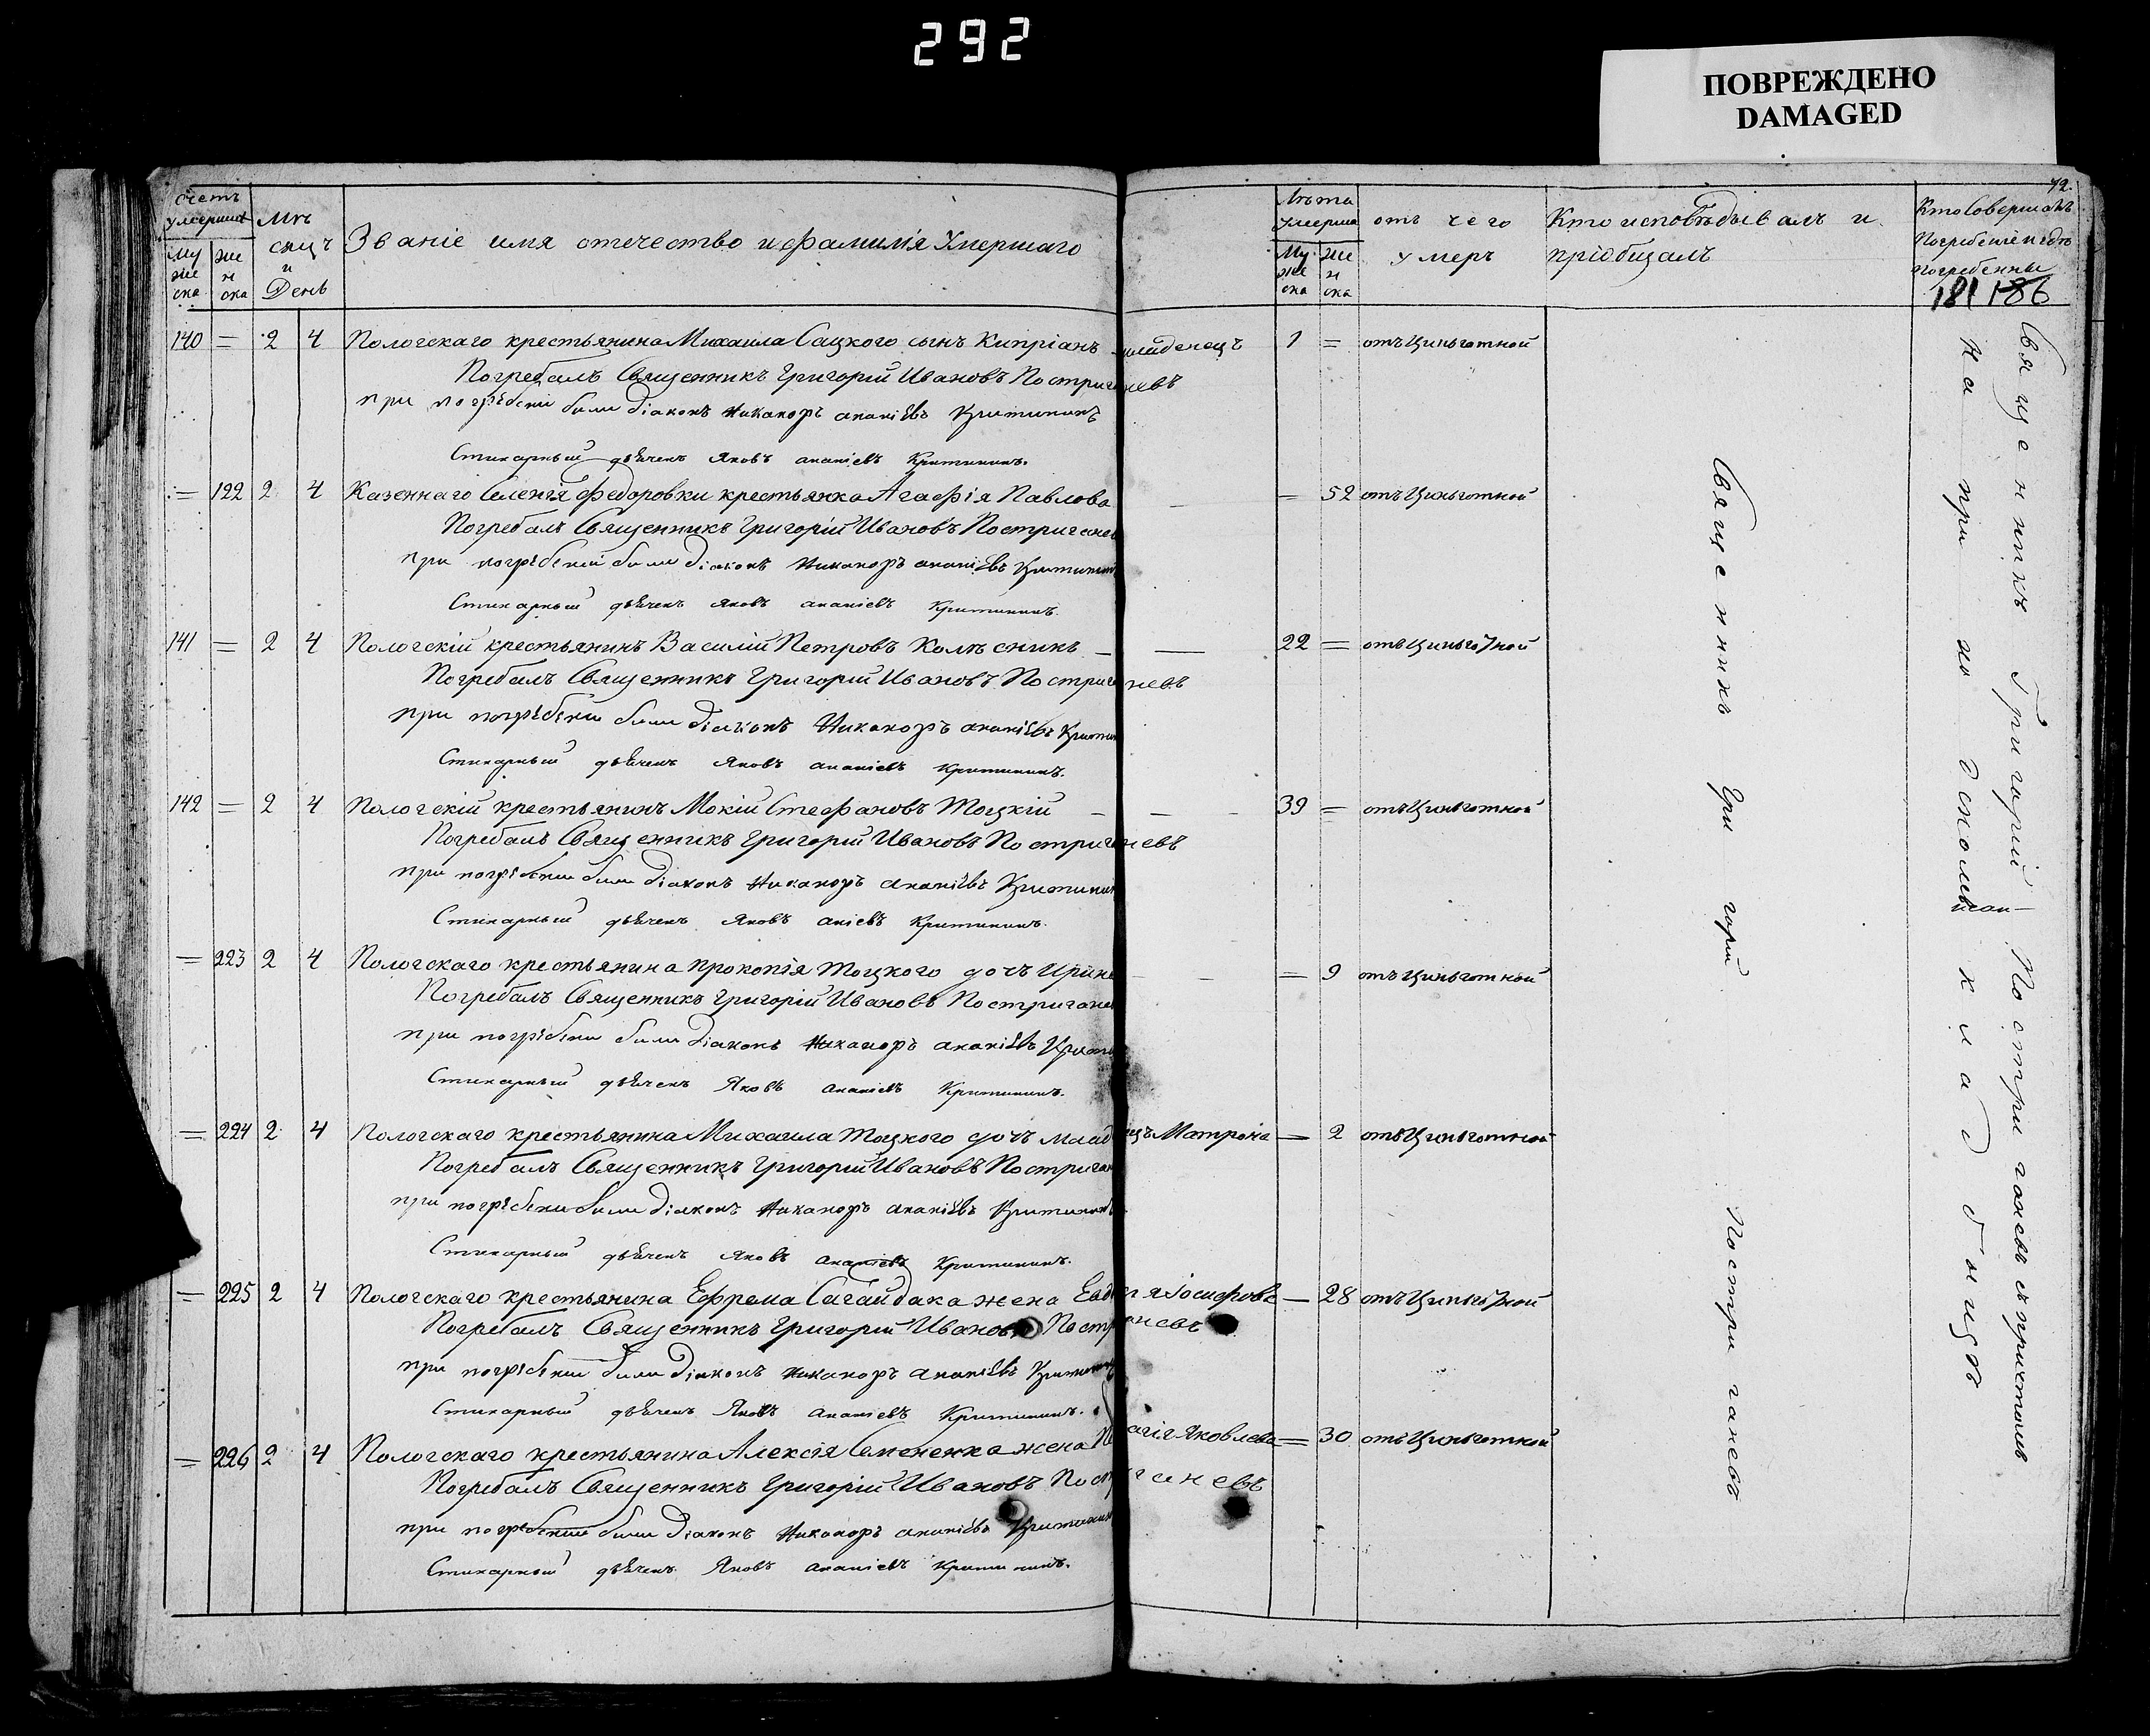 292
ПОВРЕЖДЕНО
DAMAGED
42.
Счетъ умершихъ
Мужеска
Женска
Мѣсяцъ и День
Званіе имя отечество и фамилія Умершаго
Лѣта умерша
Мужеска
Женска
отъ чего умеръ
Кто исповѣдывалъ и пріобщалъ
Кто Совершалъ Погребеніе и гдѣ погребенны
181 186
140 = 2 4 Пологскаго крестьянина Михаила Сацкого сынъ Кипріанъ младенецъ 1 = отъ Цынготной
Погребалъ Священникъ Григорій Ивановъ Постриганевъ
при погребеніи были Діаконъ Никаноръ ананіевъ Критининъ
Стихарный дьячекъ Яковъ ананіевъ Критининъ.
= 122 2 4 Казеннаго Селенія Федоровки крестьянка Агафія Павлова — = 52 отъ Цынготной
Погребалъ Священникъ Григорій Ивановъ Постриганев
при погребеніи были Діаконъ Никаноръ ананіевъ Критинин
Стихарный дьячекъ Яковъ ананіевъ Критининъ.
141 = 2 4 Пологскій крестьянинъ Василій Петровъ Колѣсникъ — — 22 = отъ Цынготной
Погребалъ Священникъ Григорій Ивановъ Постриганевъ
при погребеніи были Діаконъ Никаноръ ананіевъ Критин
Стихарный дьячекъ Яковъ ананіевъ Критининъ.
142 = 2 4 Пологскій крестьянинъ Мокій Стефановъ Тоцкій — — — 39 = отъ Цынготной
Погребалъ Священникъ Григорій Ивановъ Постриганевъ
при погребеніи были Діаконъ Никаноръ ананіевъ Критинин
Стихарный дьячекъ Яковъ аніевъ Критининъ.
= 223 2 4 Пологскаго крестьянина Прокопія Тоцкого дочъ Ирина — — = 9 отъ Цынготной
Погребалъ Священникъ Григорій Ивановъ Постригане
при погребеніи были Діаконъ Никаноръ ананіевъ Крити
Стихарный дьячекъ Яковъ ананіевъ Критининъ.
= 224 2 4 Пологскаго крестьянина Михаила Тоцкого дочъ младенецъ Матрона — 2 отъ Цынготной
Погребалъ Священникъ Григорій Ивановъ Постриган
при погребеніи были Діаконъ Никаноръ ананіевъ Критинин
Стихарный дьячекъ Яковъ ананіевъ Критининъ.
= 225 2 4 Пологскаго крестьянина Ефрема Сагайдака жена Евд ія Іосифова — 28 отъ Цынготной
Погребалъ Священникъ Григорій Ивановъ Постр аневъ
при погребеніи были Діаконъ Никаноръ ананіевъ Критинин
Стихарный дьячекъ Яковъ ананіевъ Критининъ.
= 226 2 4 Пологскаго крестьянина Алексія Семененка жена Пе агія Яковлева = 30 отъ Цынготной
Погребалъ Священникъ Григорій Ивановъ Постриганевъ
при погребеніи были Діаконъ Никаноръ ананіевъ Критинин
Стихарный дьячекъ Яковъ ананіевъ Критининъ.
Священникъ Григорій Постриганевъ
Священникъ Григорій Постриганевъ съ причтомъ
на при кладбищѣ